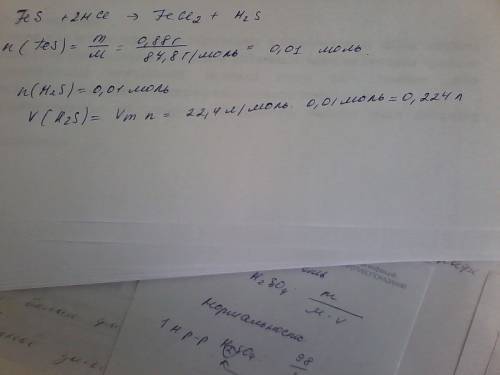 FeS + 2HCl → FeCl₂ + H₂S
n(FeS) = m/M = 0,88г/84,8г/моль = 0,01 моль.
n(H₂S) = 0,01 моль
V(H₂S) = Vm n = 22,4 л/моль · 0,01 моль = 0,224 л
H₂SO₄ m/M·V
нормальность
1 н р-р H₂SO₄ 98